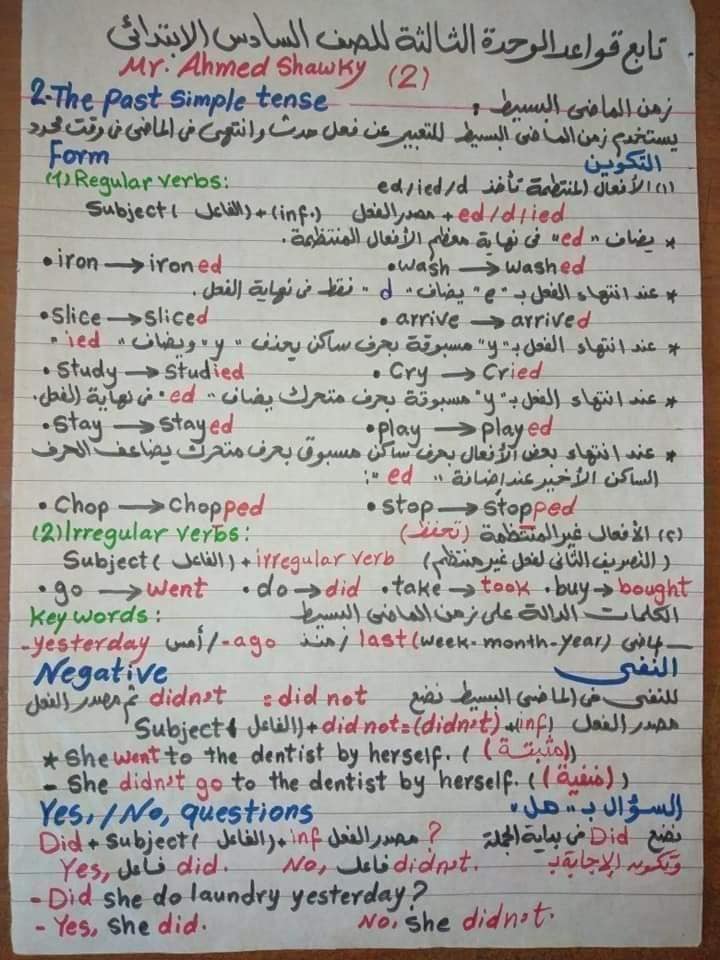 تابع قواعد الوحدة الثالثة للصف السادس الابتدائى
Mr. Ahmed Shawky (2)
2-The past simple tense زمن الماضى البسيط :
يستخدم زمن الماضى البسيط للتعبير عن فعل حدث وانتهى فى الماضى فى وقت محدد
Form التكوين
(1) Regular verbs: (١) الأفعال المنتظمة تأخذ ed/ied/d
Subject (الفاعل) + (inf.) مصدر الفعل + ed/d/ied
* يضاف "ed" فى نهاية معظم الأفعال المنتظمة.
• iron → ironed • wash → washed
* عند انتهاء الفعل بـ "e" يضاف "d" فقط فى نهاية الفعل.
• Slice → sliced • arrive → arrived
* عند انتهاء الفعل بـ "y" مسبوقة بحرف ساكن يحذف "y" ويضاف "ied"
• Study → studied • Cry → Cried
* عند انتهاء الفعل بـ "y" مسبوقة بحرف متحرك يضاف "ed" فى نهاية الفعل.
• Stay → stayed • play → played
* عند انتهاء بعض الأفعال بحرف ساكن مسبوق بحرف متحرك يضاعف الحرف
الساكن الأخير عند إضافة "ed":
• Chop → Chopped • stop → stopped
(2) Irregular verbs: (٢) الأفعال غير المنتظمة (تحفظ)
Subject (الفاعل) + irregular verb (التصريف الثانى لفعل غير منتظم)
• go → went • do → did • take → took • buy → bought
Key words: الكلمات الدالة على زمن الماضى البسيط
- yesterday أمس / - ago منذ / last (week - month - year) ماضى
Negative النفى
للنفى فى الماضى البسيط نضع didn't = did not ثم مصدر الفعل
Subject (الفاعل) + did not = (didn't) + (inf) مصدر الفعل
* She went to the dentist by herself. (مثبتة)
- She didn't go to the dentist by herself. (منفية)
Yes,/No, questions السؤال بـ "هل"
Did + Subject (الفاعل) + inf مصدر الفعل ? نضع Did فى بداية الجملة
Yes, فاعل did. No, فاعل didn't. وتكون الإجابة بـ
- Did she do laundry yesterday?
- Yes, she did. No, she didn't.